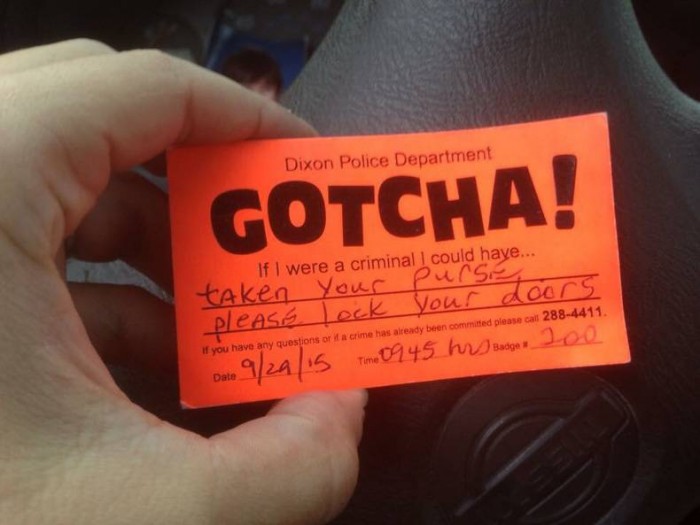 Dixon Police Department
GOTCHA!
If I were a criminal I could have...
taken your purse
please lock your doors
If you have any questions or if a crime has already been committed please call 288-4411.
Date 9/29/15 Time 0945 hrs Badge # 200
NISSAN